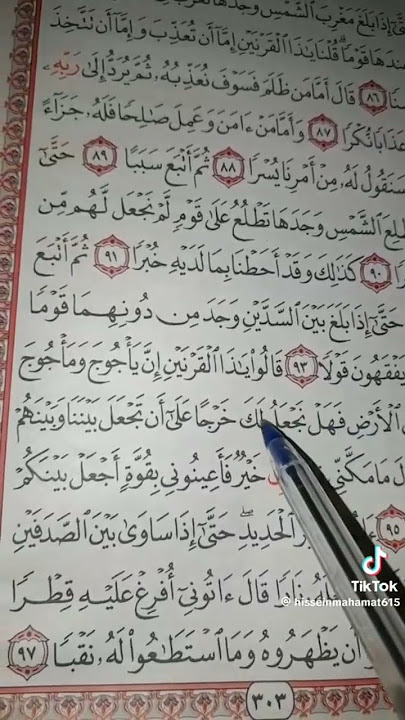 حَتَّىٰٓ إِذَا بَلَغَ مَغْرِبَ ٱلشَّمْسِ وَجَدَهَا تَغْرُبُ
عِندَهَا قَوْمًا ۗ قُلْنَا يَٰذَا ٱلْقَرْنَيْنِ إِمَّآ أَن تُعَذِّبَ وَإِمَّآ أَن تَتَّخِذَ
٨٦ قَالَ أَمَّا مَن ظَلَمَ فَسَوْفَ نُعَذِّبُهُۥ ثُمَّ يُرَدُّ إِلَىٰ رَبِّهِۦ
عَذَابًا نُّكْرًا ٨٧ وَأَمَّا مَنْ ءَامَنَ وَعَمِلَ صَٰلِحًا فَلَهُۥ جَزَآءً
وَسَنَقُولُ لَهُۥ مِنْ أَمْرِنَا يُسْرًا ٨٨ ثُمَّ أَتْبَعَ سَبَبًا ٨٩ حَتَّىٰٓ
ٱلشَّمْسِ وَجَدَهَا تَطْلُعُ عَلَىٰ قَوْمٍ لَّمْ نَجْعَل لَّهُم مِّن
٩٠ كَذَٰلِكَ وَقَدْ أَحَطْنَا بِمَا لَدَيْهِ خُبْرًا ٩١ ثُمَّ أَتْبَعَ
حَتَّىٰٓ إِذَا بَلَغَ بَيْنَ ٱلسَّدَّيْنِ وَجَدَ مِن دُونِهِمَا قَوْمًا
يَفْقَهُونَ قَوْلًا ٩٣ قَالُوا۟ يَٰذَا ٱلْقَرْنَيْنِ إِنَّ يَأْجُوجَ وَمَأْجُوجَ
ٱلْأَرْضِ فَهَلْ نَجْعَلُ لَكَ خَرْجًا عَلَىٰٓ أَن تَجْعَلَ بَيْنَنَا وَبَيْنَهُمْ
مَا مَكَّنِّي خَيْرٌ فَأَعِينُونِي بِقُوَّةٍ أَجْعَلْ بَيْنَكُمْ
٩٥ ٱلْحَدِيدِ ۖ حَتَّىٰٓ إِذَا سَاوَىٰ بَيْنَ ٱلصَّدَفَيْنِ
قَالَ ءَاتُونِيٓ أُفْرِغْ عَلَيْهِ قِطْرًا
أَن يَظْهَرُوهُ وَمَا ٱسْتَطَٰعُوا۟ لَهُۥ نَقْبًا ٩٧
٣٠٣
TikTok
@hisseinmahamat615